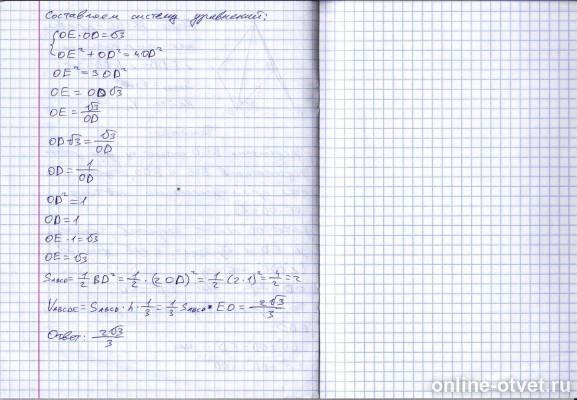 Составляем систему уравнений:
{OE·OD=√3
OE²+OD²=4OD²
OE²=3OD²
OE=OD√3
OE=√3/OD
OD√3=√3/OD
OD=1/OD
OD²=1
OD=1
OE·1=√3
OE=√3
S_ABCD=1/2 BD²=1/2·(2OD)²=1/2(2·1)²=4/2=2
V_ABCDE=S_ABCD·h·1/3=1/3 S_ABCD·EO=2√3/3
Ответ: 2√3/3
online-otvet.ru